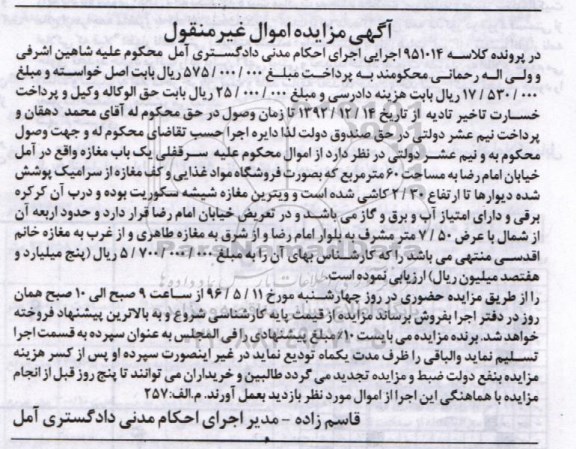 آگهی مزایده اموال غیرمنقول
در پرونده کلاسه ۹۵۱۰۱۴ اجرایی اجرای احکام مدنی دادگستری آمل محکوم علیه شاهین اشرفی
و ولی اله رحمانی محکومند به پرداخت مبلغ ۵۷۵/۰۰۰/۰۰۰ ریال بابت اصل خواسته و مبلغ
۱۷/۵۳۰/۰۰۰ ریال بابت هزینه دادرسی و مبلغ ۲۵/۰۰۰/۰۰۰ ریال بابت حق الوکاله وکیل و پرداخت
خسارت تاخیر تادیه از تاریخ ۱۳۹۲/۱۲/۱۴ تا زمان وصول در حق محکوم له آقای محمد دهقان و
پرداخت نیم عشر دولتی در حق صندوق دولت لذا دایره اجرا حسب تقاضای محکوم له و جهت وصول
محکوم به و نیم عشر دولتی در نظر دارد از اموال محکوم علیه سرقفلی یک باب مغازه واقع در آمل
خیابان امام رضا به مساحت ۶۰ مترمربع که بصورت فروشگاه مواد غذایی و کف مغازه از سرامیک پوشش
شده دیوارها تا ارتفاع ۲/۳۰ کاشی شده است و ویترین مغازه شیشه سکوریت بوده و درب آن کرکره
برقی و دارای امتیاز آب و برق و گاز می باشد و در تعریض خیابان امام رضا قرار دارد و حدود اربعه آن
از شمال با عرض ۷/۵۰ متر مشرف به بلوار امام رضا و از شرق به مغازه طاهری و از غرب به مغازه خانم
اقدسی منتهی می باشد را که کارشناس بهای آن را به مبلغ ۵/۷۰۰/۰۰۰/۰۰۰ ریال (پنج میلیارد و
هفتصد میلیون ریال) ارزیابی نموده است.
را از طریق مزایده حضوری در روز چهارشنبه مورخ ۹۶/۵/۱۱ از ساعت ۹ صبح الی ۱۰ صبح همان
روز در دفتر اجرا بفروش برساند مزایده از قیمت پایه کارشناسی شروع و به بالاترین پیشنهاد فروخته
خواهد شد. برنده مزایده می بایست ۱۰٪ مبلغ پیشنهادی را فی المجلس به عنوان سپرده به قسمت اجرا
تسلیم نماید والباقی را ظرف مدت یکماه تودیع نماید در غیر اینصورت سپرده او پس از کسر هزینه
مزایده بنفع دولت ضبط و مزایده تجدید می گردد طالبین و خریداران می توانند تا پنج روز قبل از انجام
مزایده با هماهنگی این اجرا از اموال مورد نظر بازدید بعمل آورند. م.الف:۲۵۷
قاسم زاده - مدیر اجرای احکام مدنی دادگستری آمل